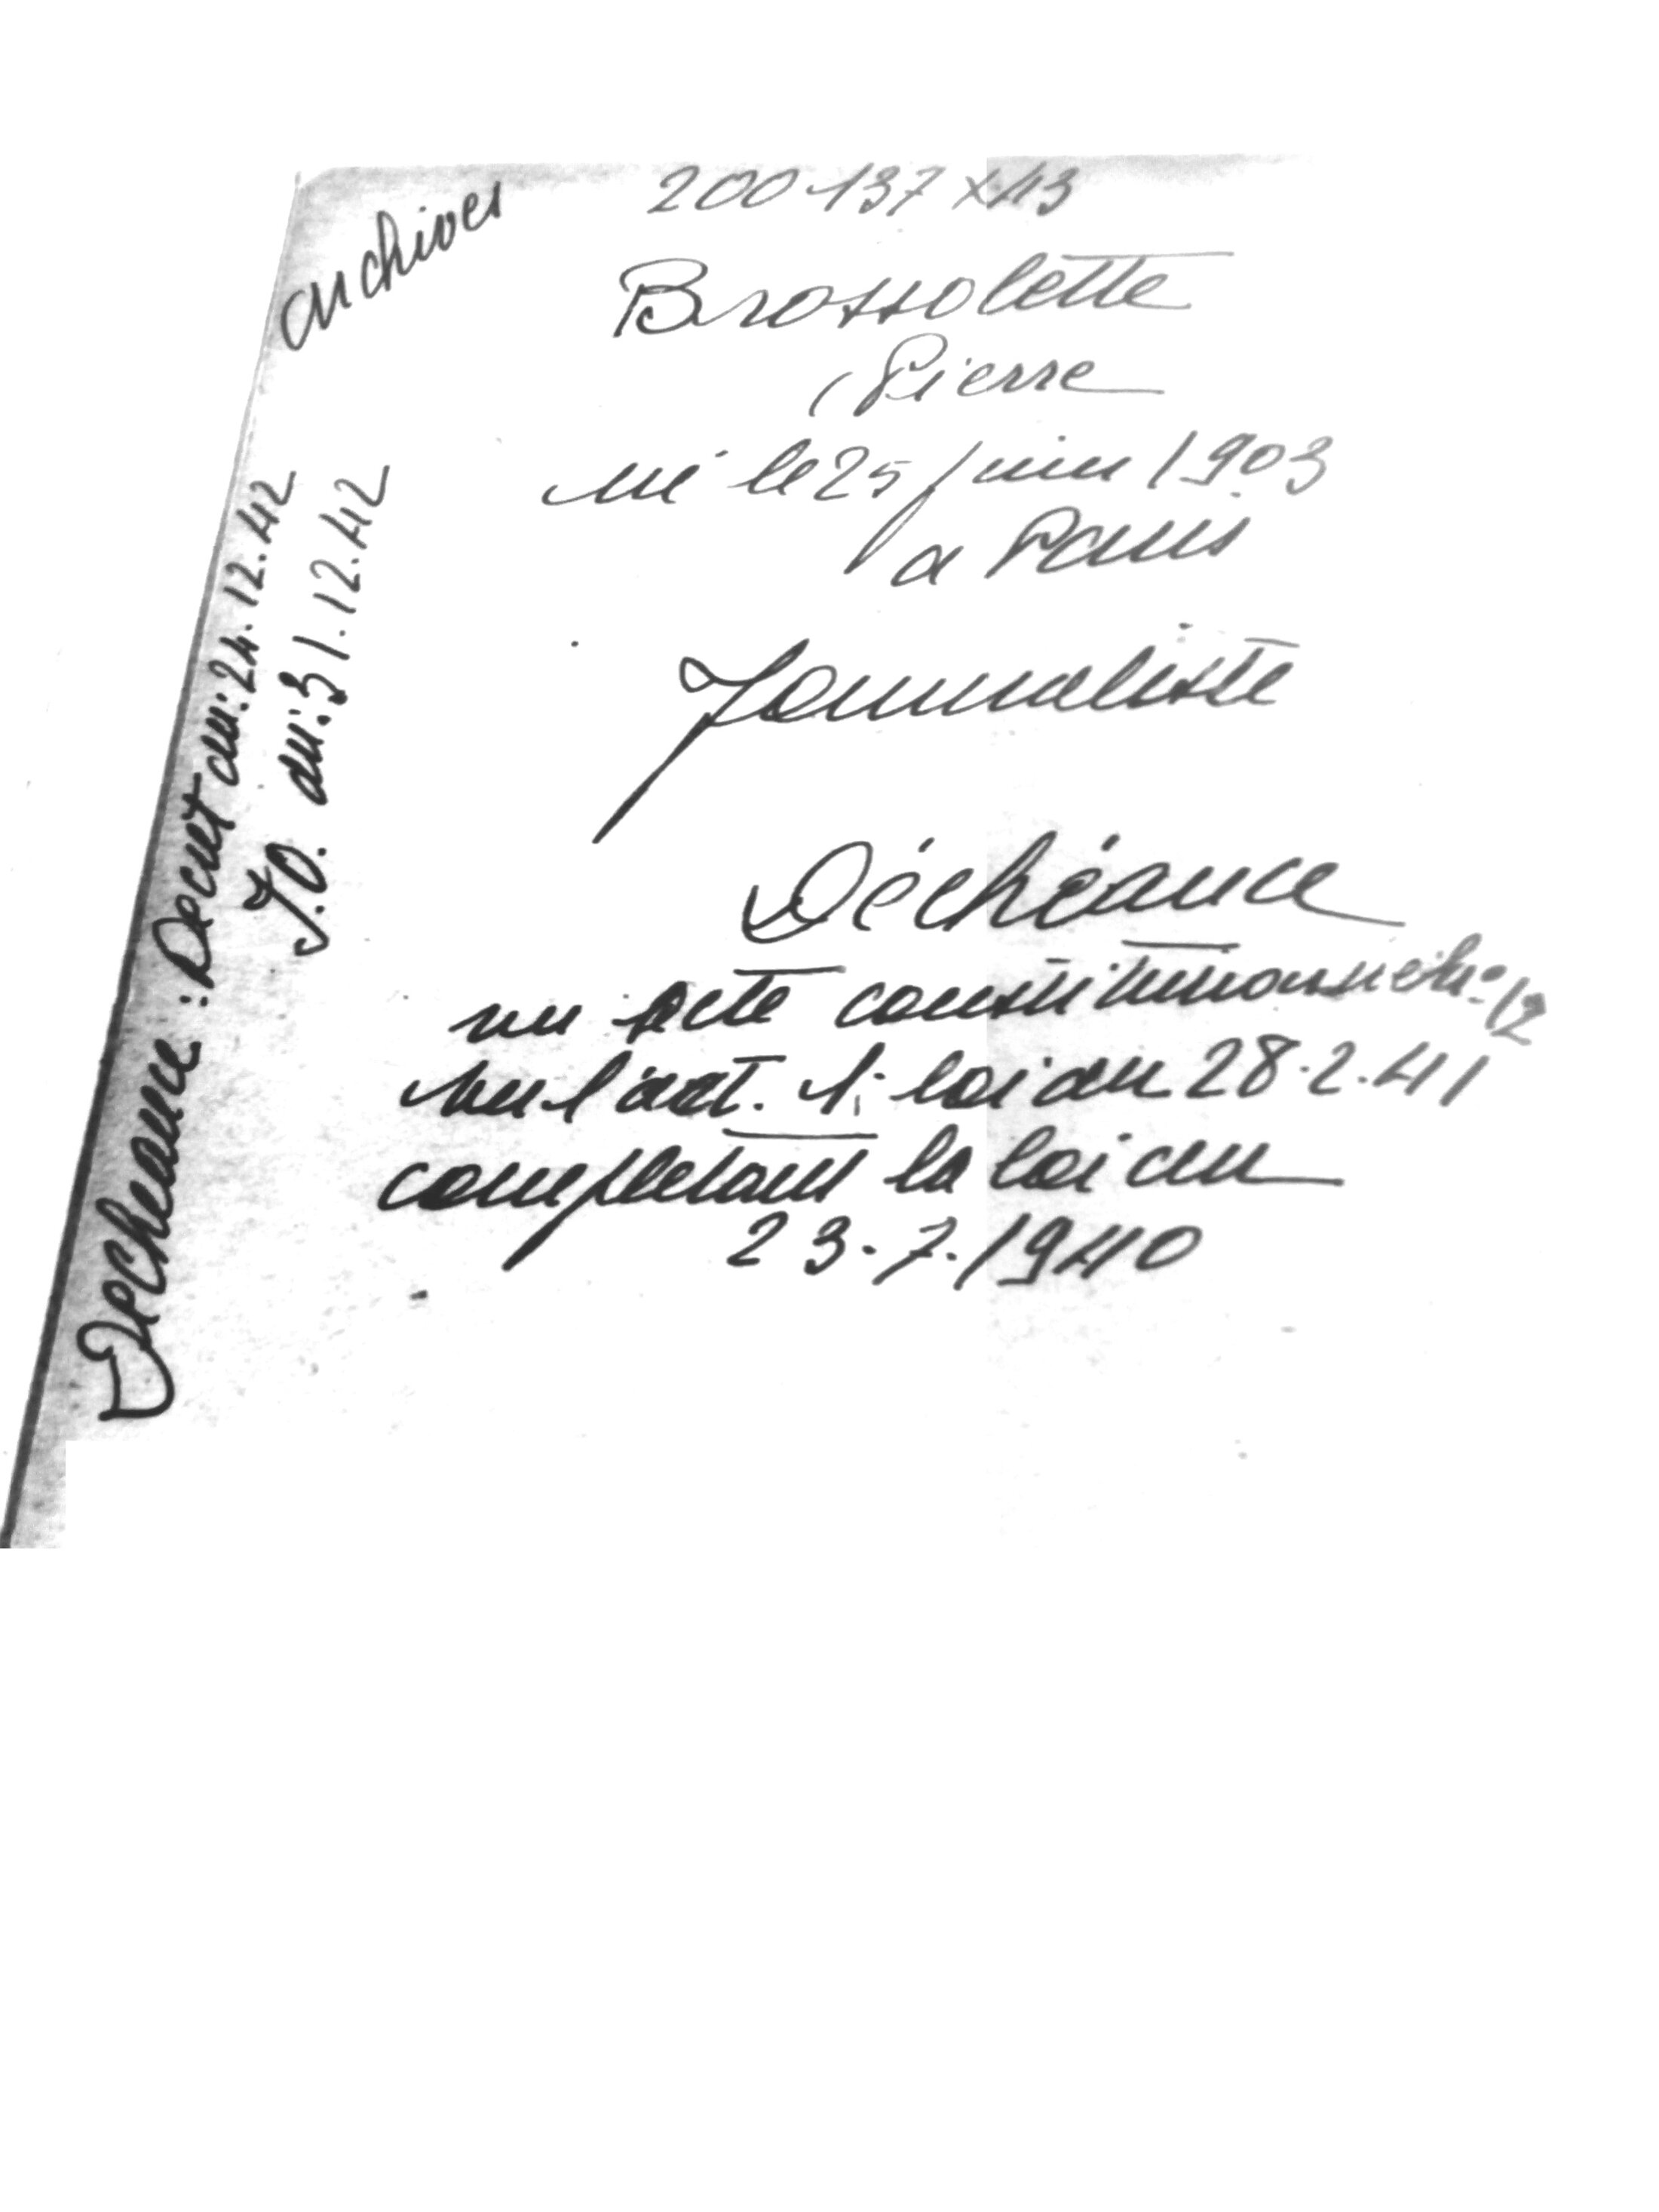 archives
200137 X43
Brossolette
Pierre
né le 25 juin 1903
a Paris
Journaliste
Déchéance
vu acte constitutionnel n° 12
vu l'art. 1; loi du 28.2.41
completant la loi du
23.7.1940
Decheance : Decret du: 24.12.42
J.O. du: 31.12.42